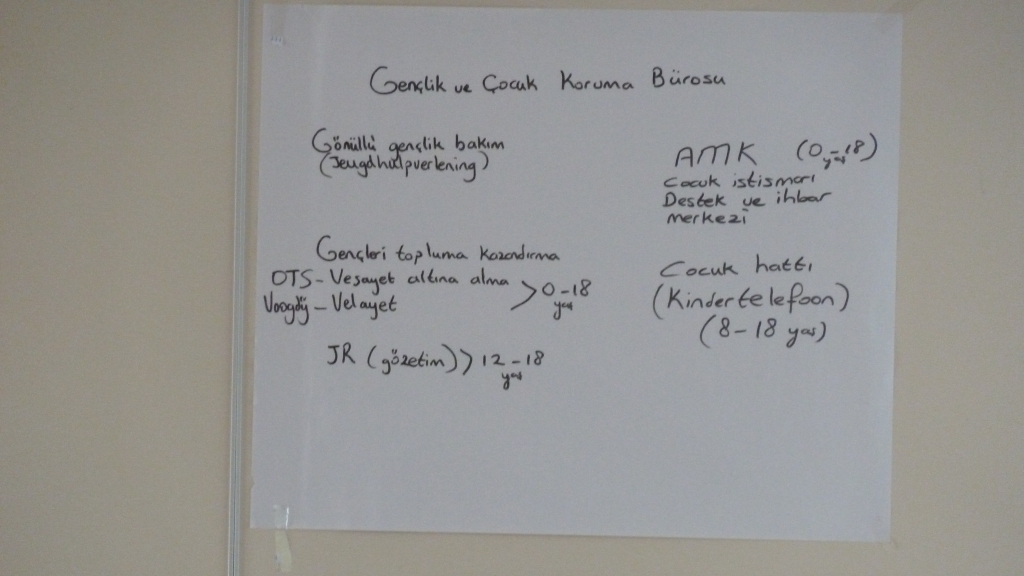 Gençlik ve Çocuk Koruma Bürosu
Gönüllü gençlik bakım
(Jeugdhulpverlening)
Gençleri topluma kazandırma
OTS - Vesayet altına alma
Voogdij - Velayet
> 0-18
yaş
JR (gözetim) > 12-18
yaş
AMK (0-18)
yaş
Çocuk istismarı
Destek ve ihbar
merkezi
Çocuk hattı
(Kindertelefoon)
(8-18 yaş)